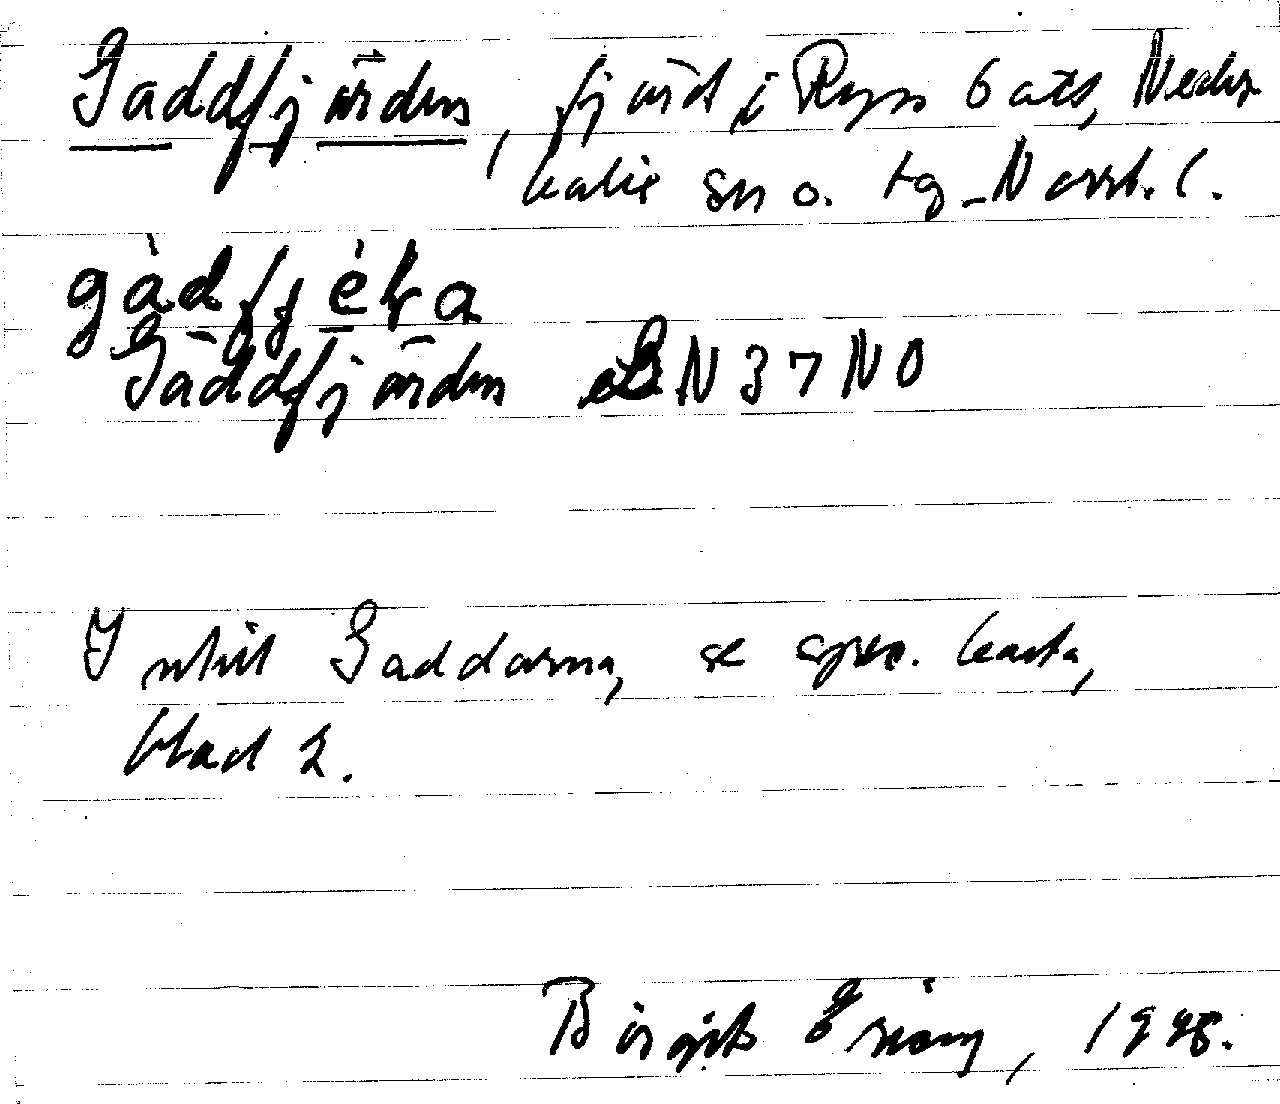 Gaddfjärden, fjärd i Ryss 6 ats, Neder
kalix sn o. tg. Norrb. l.
gàdfjèḷa
Gäddfjärden EBN 37 NO
I utkil Gaddarna, se spec. karta,
blad 2.
Birgit Eriay, 1998.